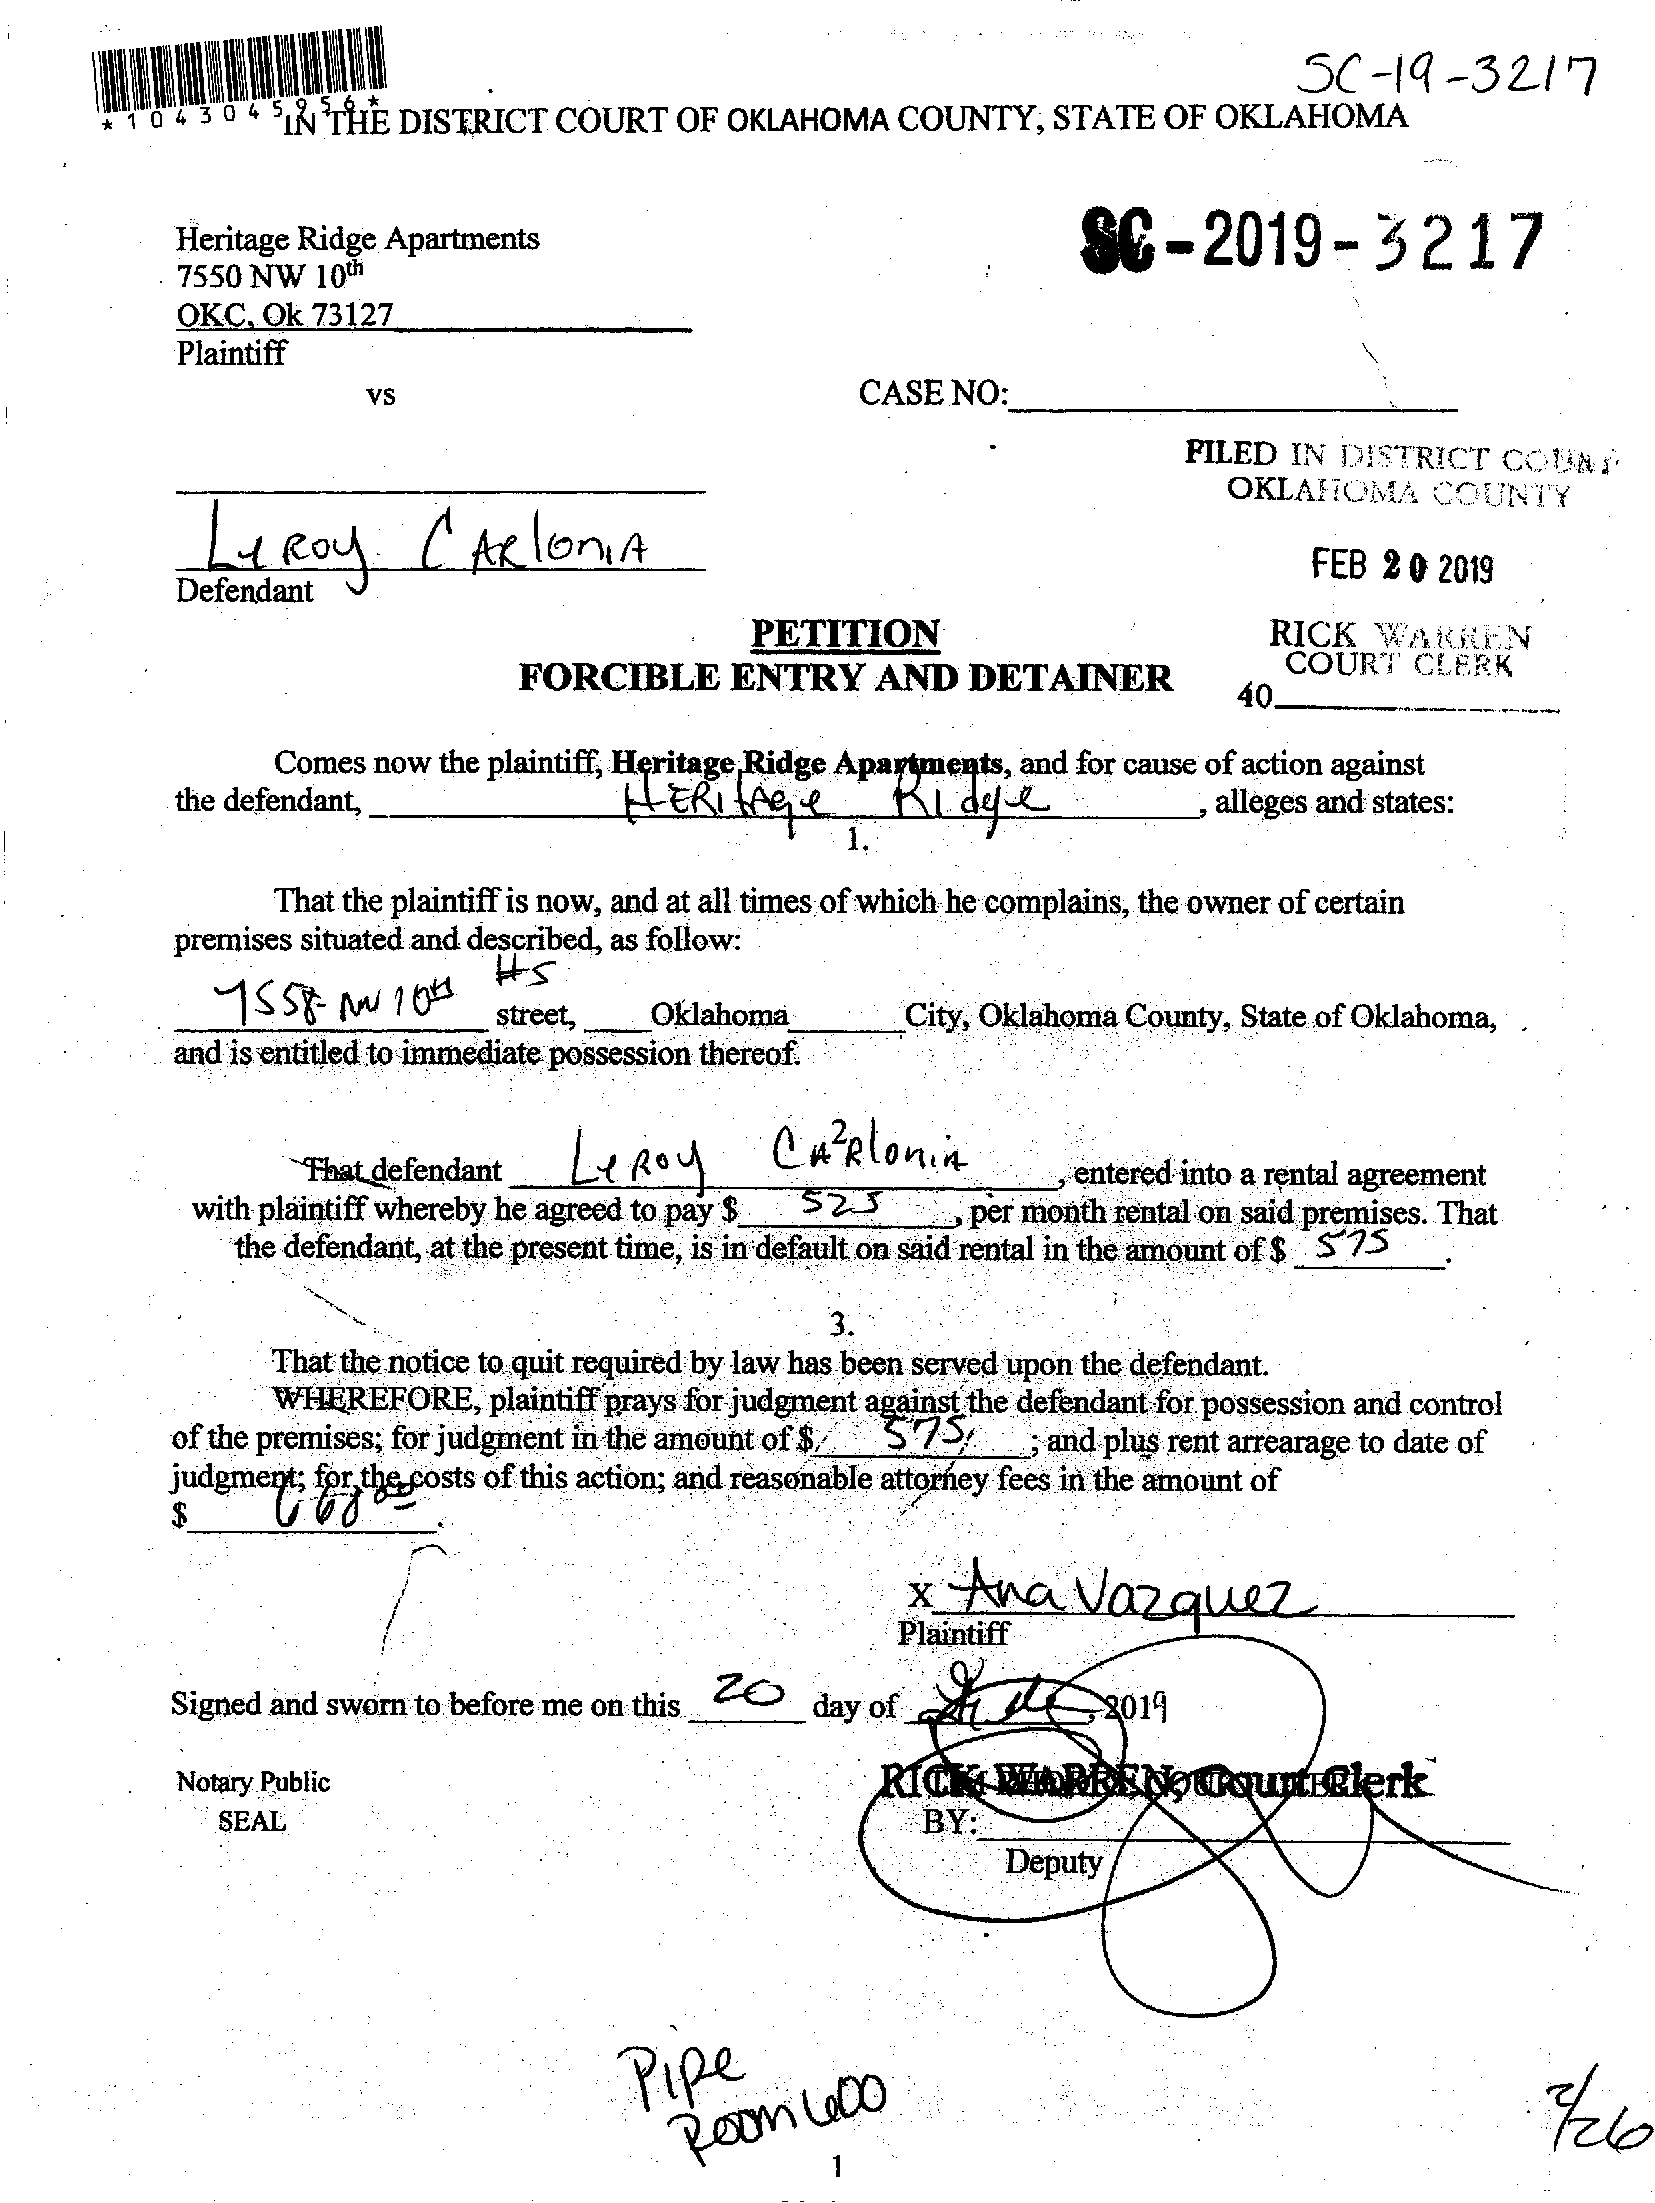 SC-19-3217
*1043045956*
IN THE DISTRICT COURT OF OKLAHOMA COUNTY, STATE OF OKLAHOMA
Heritage Ridge Apartments
SC-2019-3217
7550 NW 10th
OKC, Ok 73127
Plaintiff
vs
CASE NO:
FILED IN DISTRICT COURT
OKLAHOMA COUNTY
LeRoy CARloniA
FEB 20 2019
Defendant
PETITION
RICK WARREN
COURT CLERK
FORCIBLE ENTRY AND DETAINER
40
Comes now the plaintiff, Heritage Ridge Apartments, and for cause of action against
the defendant, HERitAge Ridge, alleges and states:
1.
That the plaintiff is now, and at all times of which he complains, the owner of certain
premises situated and described, as follow:
7558 NW 10th #5 street, Oklahoma City, Oklahoma County, State of Oklahoma,
and is entitled to immediate possession thereof.
2
That defendant LeRoy CARloniA, entered into a rental agreement
with plaintiff whereby he agreed to pay $ 525, per month rental on said premises. That
the defendant, at the present time, is in default on said rental in the amount of $ 575.
3.
That the notice to quit required by law has been served upon the defendant.
WHEREFORE, plaintiff prays for judgment against the defendant for possession and control
of the premises; for judgment in the amount of $ 575; and plus rent arrearage to date of
judgment; for the costs of this action; and reasonable attorney fees in the amount of
$
x Ana Vazquez
Plaintiff
Signed and sworn to before me on this 20 day of , 2019
Notary Public
RICK WARREN, Court Clerk
SEAL
BY:
Deputy
Pipe
Room 600
2/26
1